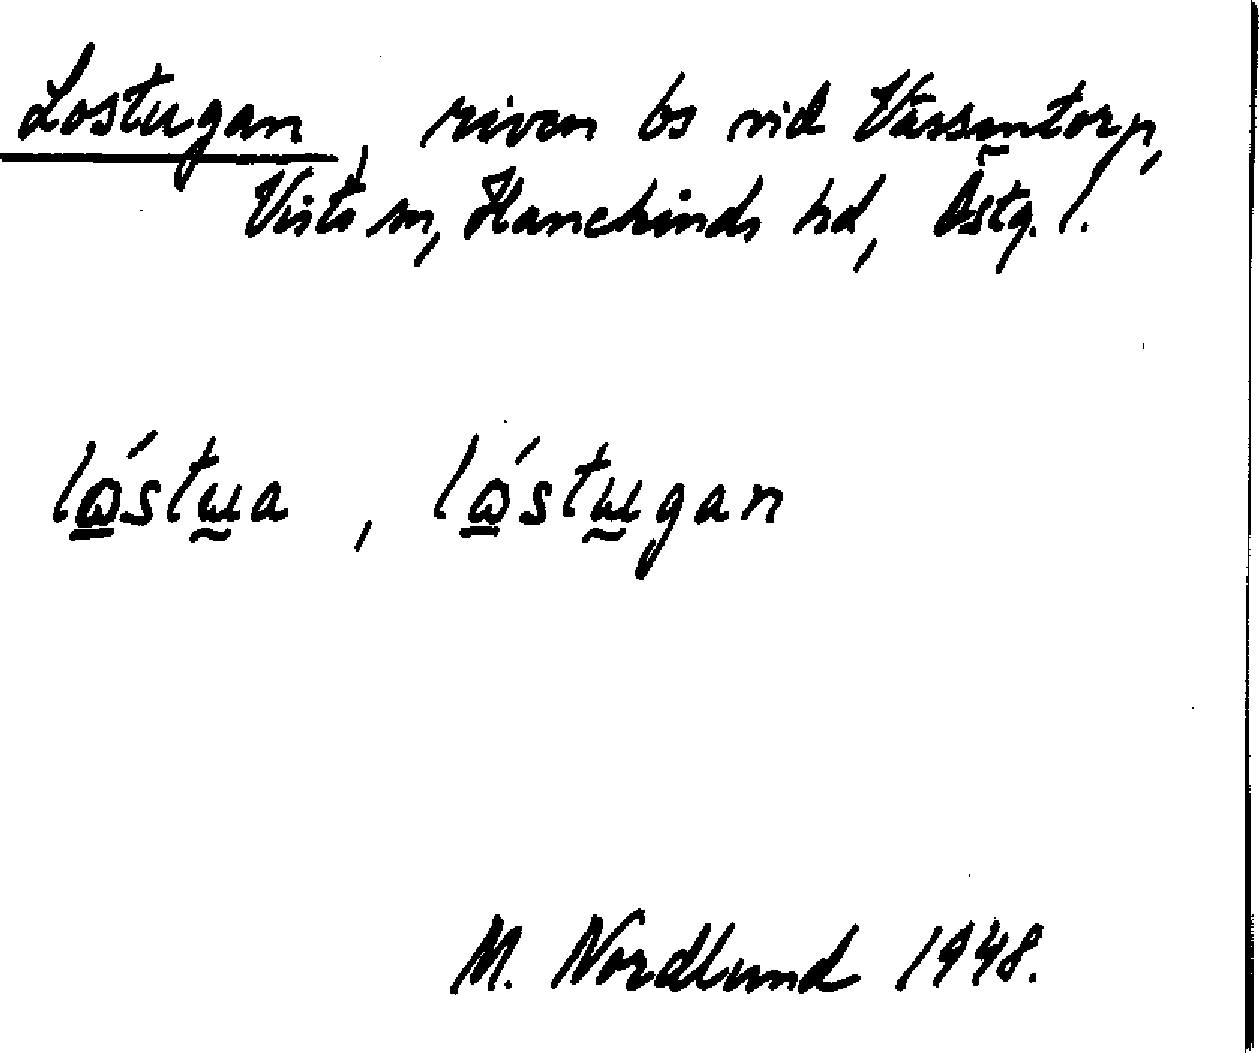 Lostugan, riven bs vid Vässentorp,
Vists sn, Hanekinds hd, Östg. l.
lώ̲stu̲a, lώ̲stu̲gan
M. Nordlund 1948.